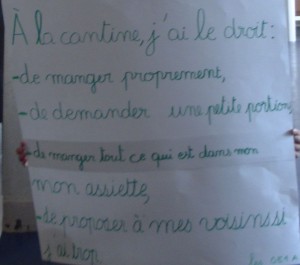 À la cantine, j'ai le droit :
- de manger proprement,
- de demander une petite portion,
- de manger tout ce qui est dans mon
mon assiette,
- de proposer à mes voisins si
j'ai trop